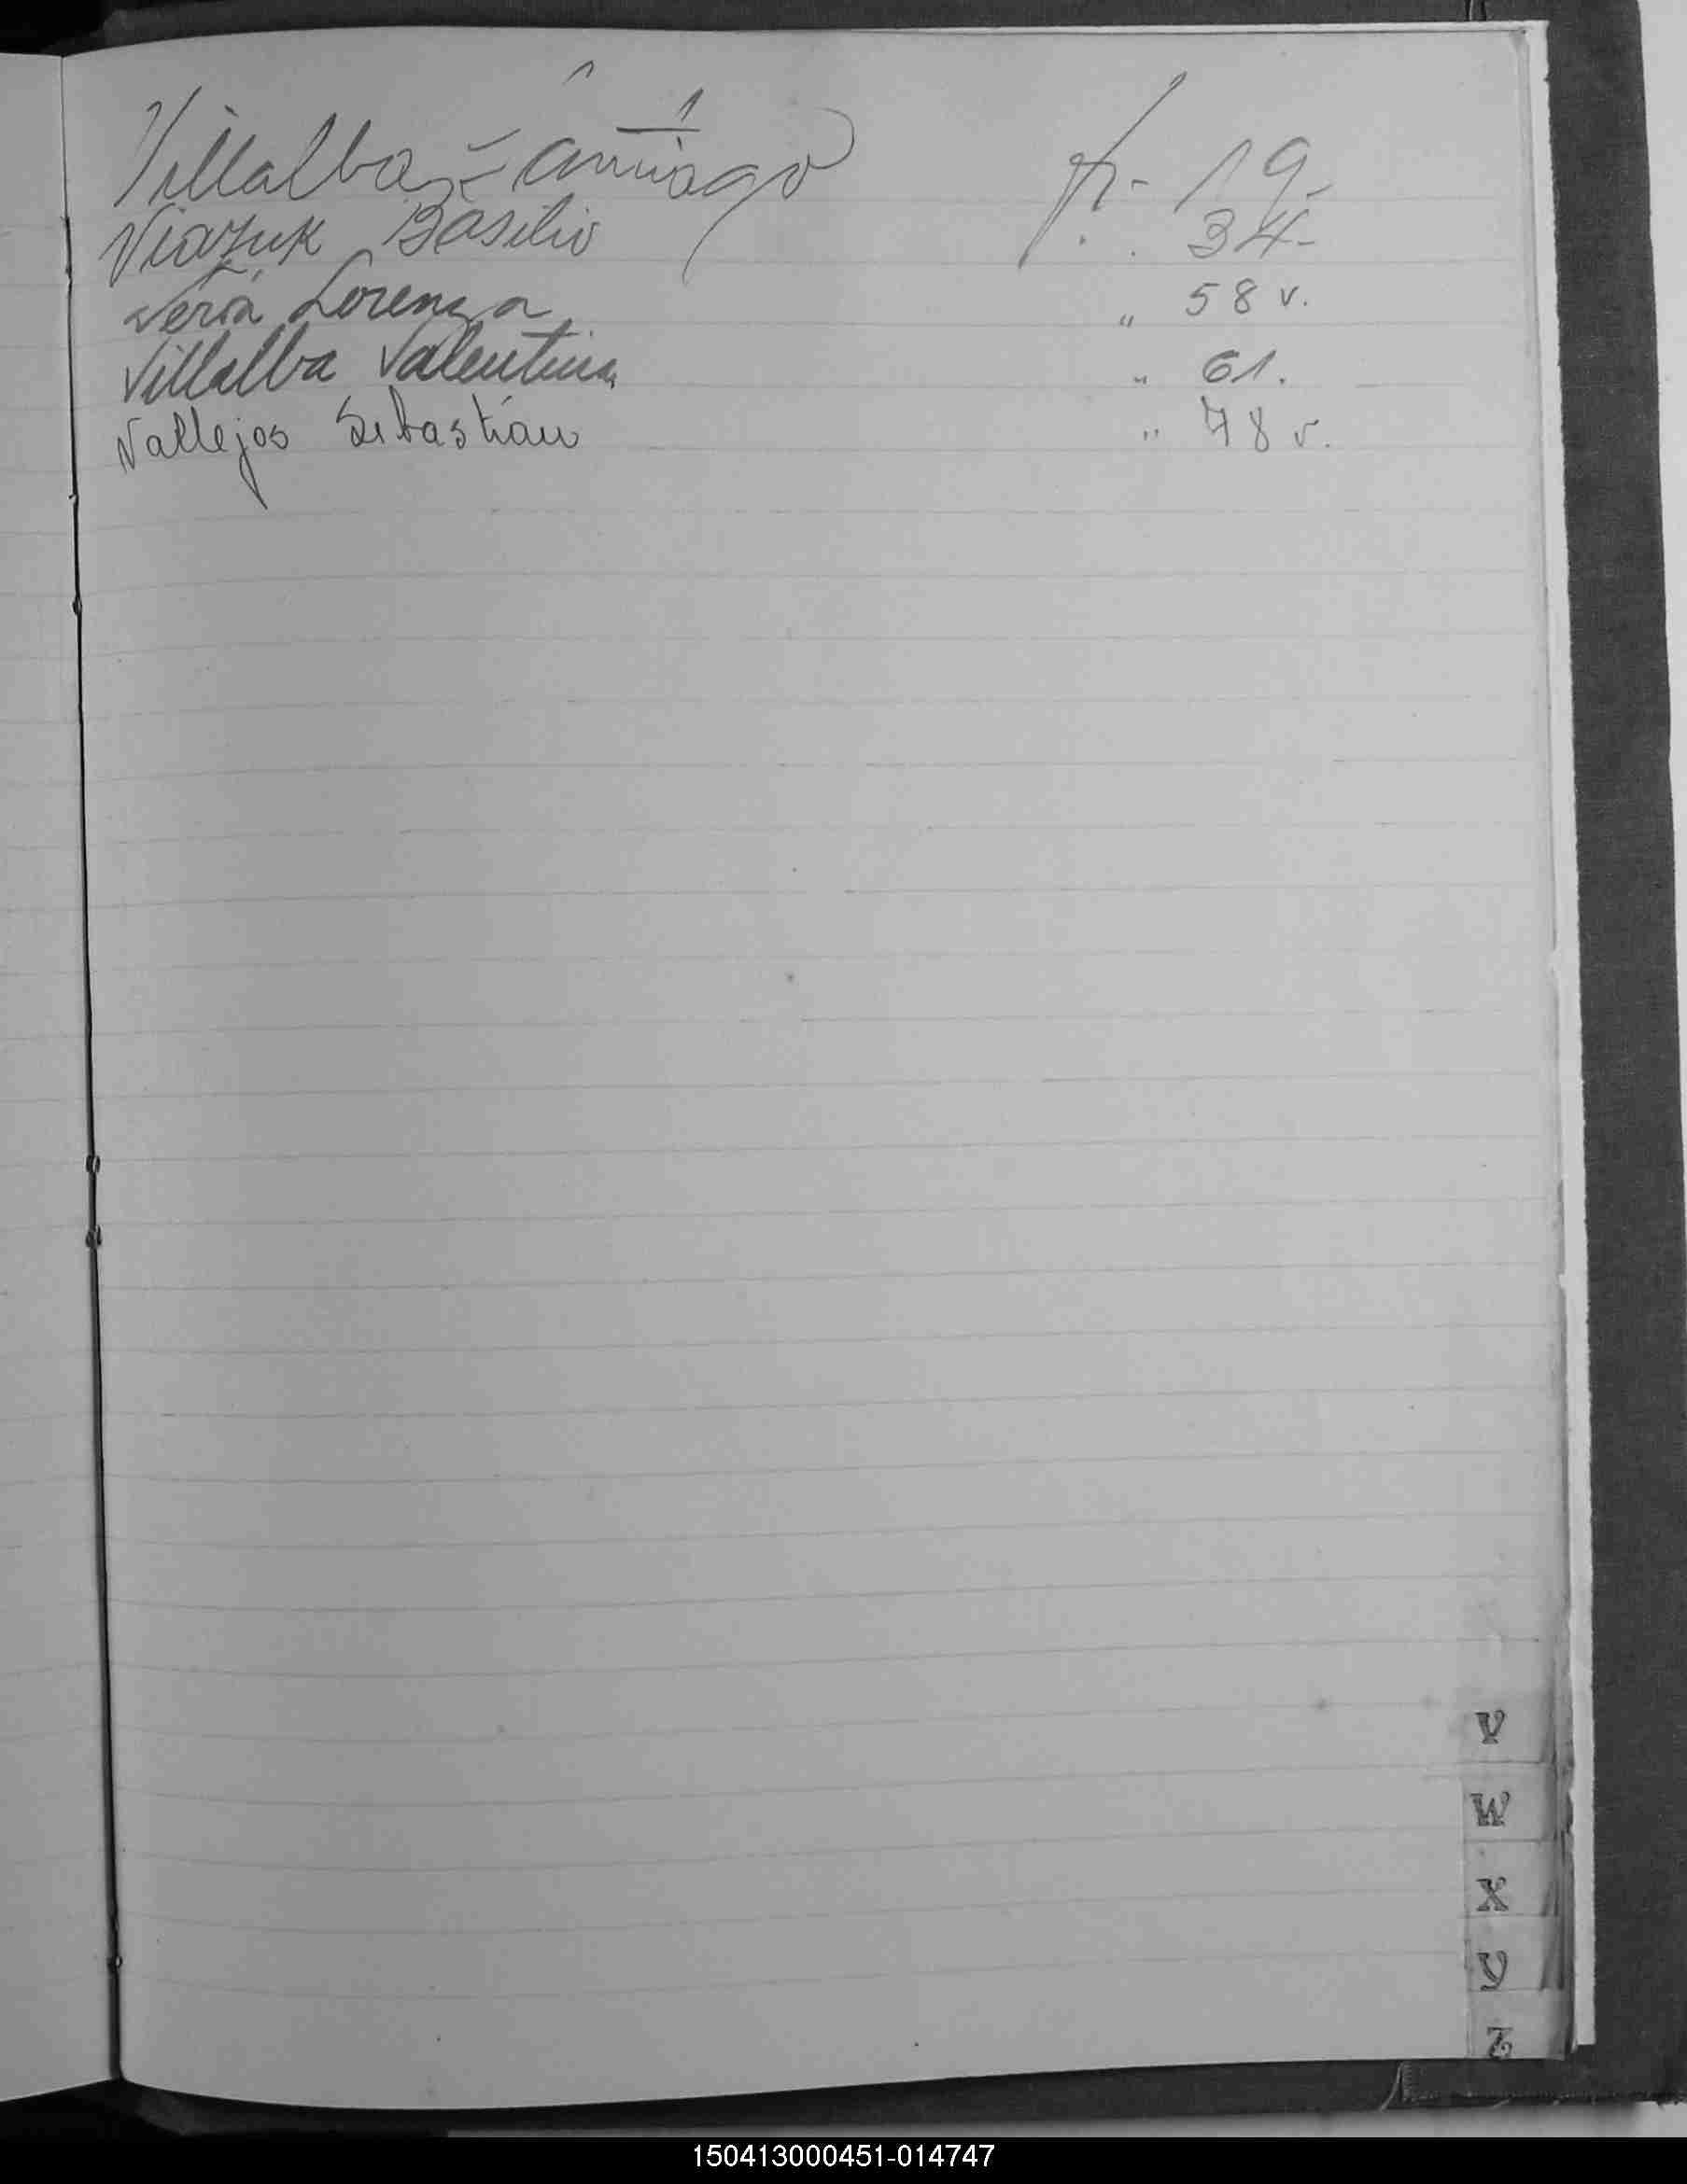 Villalba Santiago fs- 19-
Viazuk Basilio . . 34-
Vera Lorenza " 58 v.
Villalba Valentina " 61.
Vallejos Sebastián " 78 v.
V
W
X
Y
Z
150413000451-014747